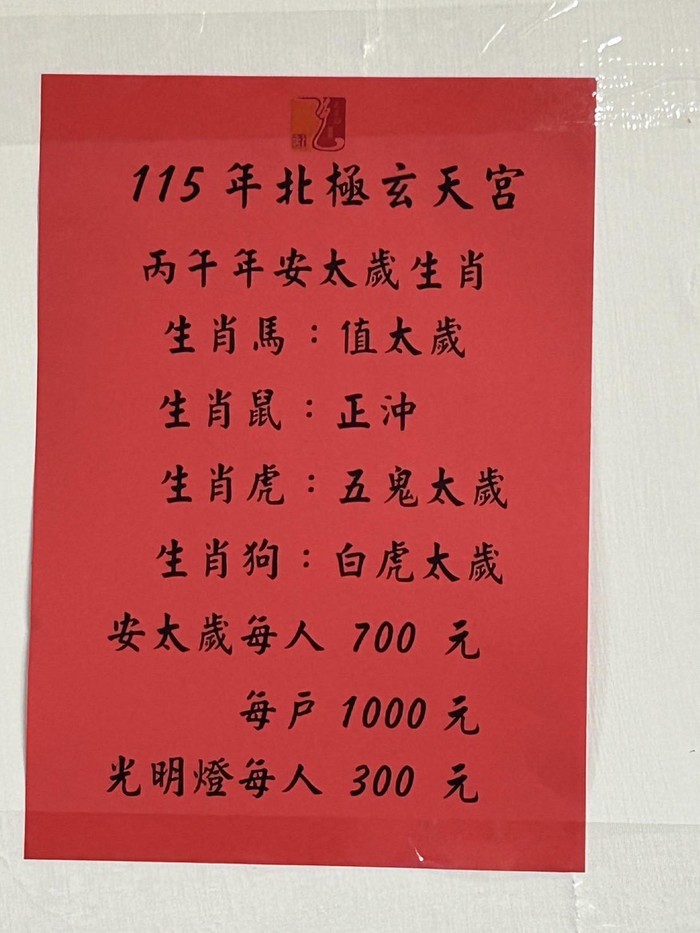 115年北極玄天宮
丙午年安太歲生肖
生肖馬：值太歲
生肖鼠：正沖
生肖虎：五鬼太歲
生肖狗：白虎太歲
安太歲每人 700 元
每戶 1000 元
光明燈每人 300 元